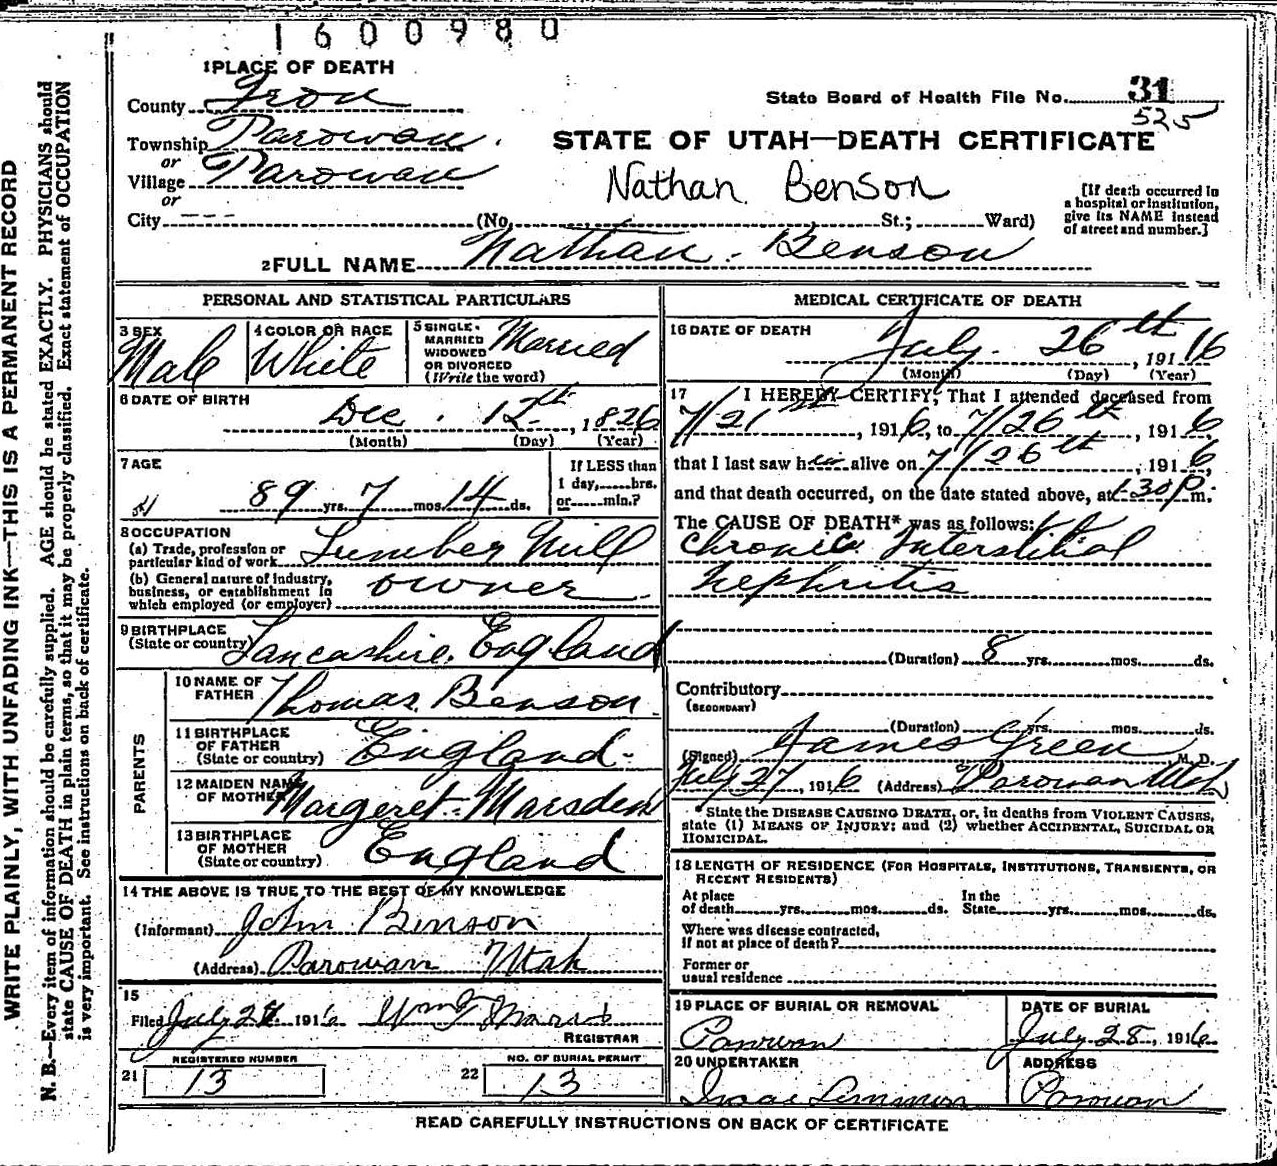 1600980
1 PLACE OF DEATH
County Iron
State Board of Health File No. 31
525
Township Parowan
or
STATE OF UTAH—DEATH CERTIFICATE
Village Parowan
or
Nathan Benson
City --- (No. St.; Ward)
[If death occurred in
a hospital or institution,
give its NAME instead
of street and number.]
2 FULL NAME Nathan Benson
PERSONAL AND STATISTICAL PARTICULARS
3 SEX Male
4 COLOR OR RACE White
5 SINGLE,
MARRIED
WIDOWED
OR DIVORCED
(Write the word) Married
6 DATE OF BIRTH
Dec. 12th, 1826
(Month) (Day) (Year)
7 AGE
89 yrs. 7 mos. 14 ds.
If LESS than
1 day, hrs.
or min.?
8 OCCUPATION
(a) Trade, profession or
particular kind of work Lumber Mill
(b) General nature of industry,
business, or establishment in
which employed (or employer) owner
9 BIRTHPLACE
(State or country) Lancashire, England
PARENTS
10 NAME OF
FATHER Thomas Benson
11 BIRTHPLACE
OF FATHER
(State or country) England
12 MAIDEN NAME
OF MOTHER Margeret Marsden
13 BIRTHPLACE
OF MOTHER
(State or country) England
14 THE ABOVE IS TRUE TO THE BEST OF MY KNOWLEDGE
(Informant) John Binson
(Address) Parowan Utah
15
Filed July 1916 Wm
REGISTRAR
REGISTERED NUMBER
21 13
NO. OF BURIAL PERMIT
22 13
MEDICAL CERTIFICATE OF DEATH
16 DATE OF DEATH
July 26th, 191 16
(Month) (Day) (Year)
17 I HEREBY CERTIFY, That I attended deceased from
7/21st, 1916, to 7/26th, 1916
that I last saw him alive on 7/26th, 1916,
and that death occurred, on the date stated above, at 1:30 P m.
The CAUSE OF DEATH* was as follows:
Chronic Interstitial
Nephritis
(Duration) 8 yrs. mos. ds.
Contributory
(SECONDARY)
(Duration) yrs. mos. ds.
(Signed) James Green M. D.
July 27, 1916 (Address) Parowan Utah
* State the DISEASE CAUSING DEATH, or, in deaths from VIOLENT CAUSES,
state (1) MEANS OF INJURY; and (2) whether ACCIDENTAL, SUICIDAL OR
HOMICIDAL.
18 LENGTH OF RESIDENCE (FOR HOSPITALS, INSTITUTIONS, TRANSIENTS, OR
RECENT RESIDENTS)
At place
of death yrs. mos. ds.
In the
State yrs. mos. ds.
Where was disease contracted,
if not at place of death?
Former or
usual residence
19 PLACE OF BURIAL OR REMOVAL
Parowan
DATE OF BURIAL
July 28, 1916
20 UNDERTAKER
Isaac
ADDRESS
Parowan
READ CAREFULLY INSTRUCTIONS ON BACK OF CERTIFICATE
WRITE PLAINLY, WITH UNFADING INK—THIS IS A PERMANENT RECORD
N. B.—Every item of information should be carefully supplied. AGE should be stated EXACTLY. PHYSICIANS should
state CAUSE OF DEATH in plain terms, so that it may be properly classified. Exact statement of OCCUPATION
is very important. See instructions on back of certificate.